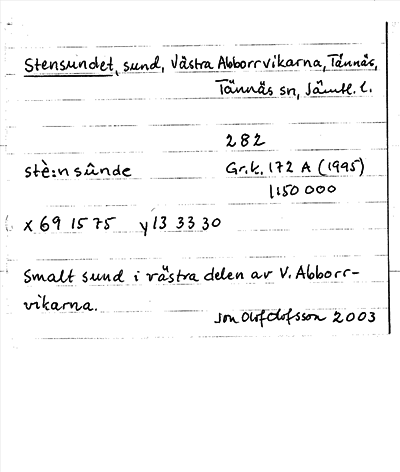 Stensundet, sund, Västra Abborrvikarna, Tännäs,
Tännäs sn, Jämtl. l.
282
stè:nsûnde Gr.k. 172 A (1995)
1:50 000
x 69 15 75 y 13 33 30
Smalt sund i västra delen av V. Abborr-
vikarna.
Jon Olof Olofsson 2003